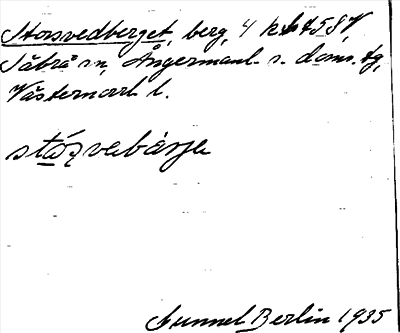 Storsvedberget, berg, 4 km 45 S V
Säbrå sn, Ångermanl. s. doms. tg,
Västernorrl. l.
stósvebärje
Gunnel Berlin 1935